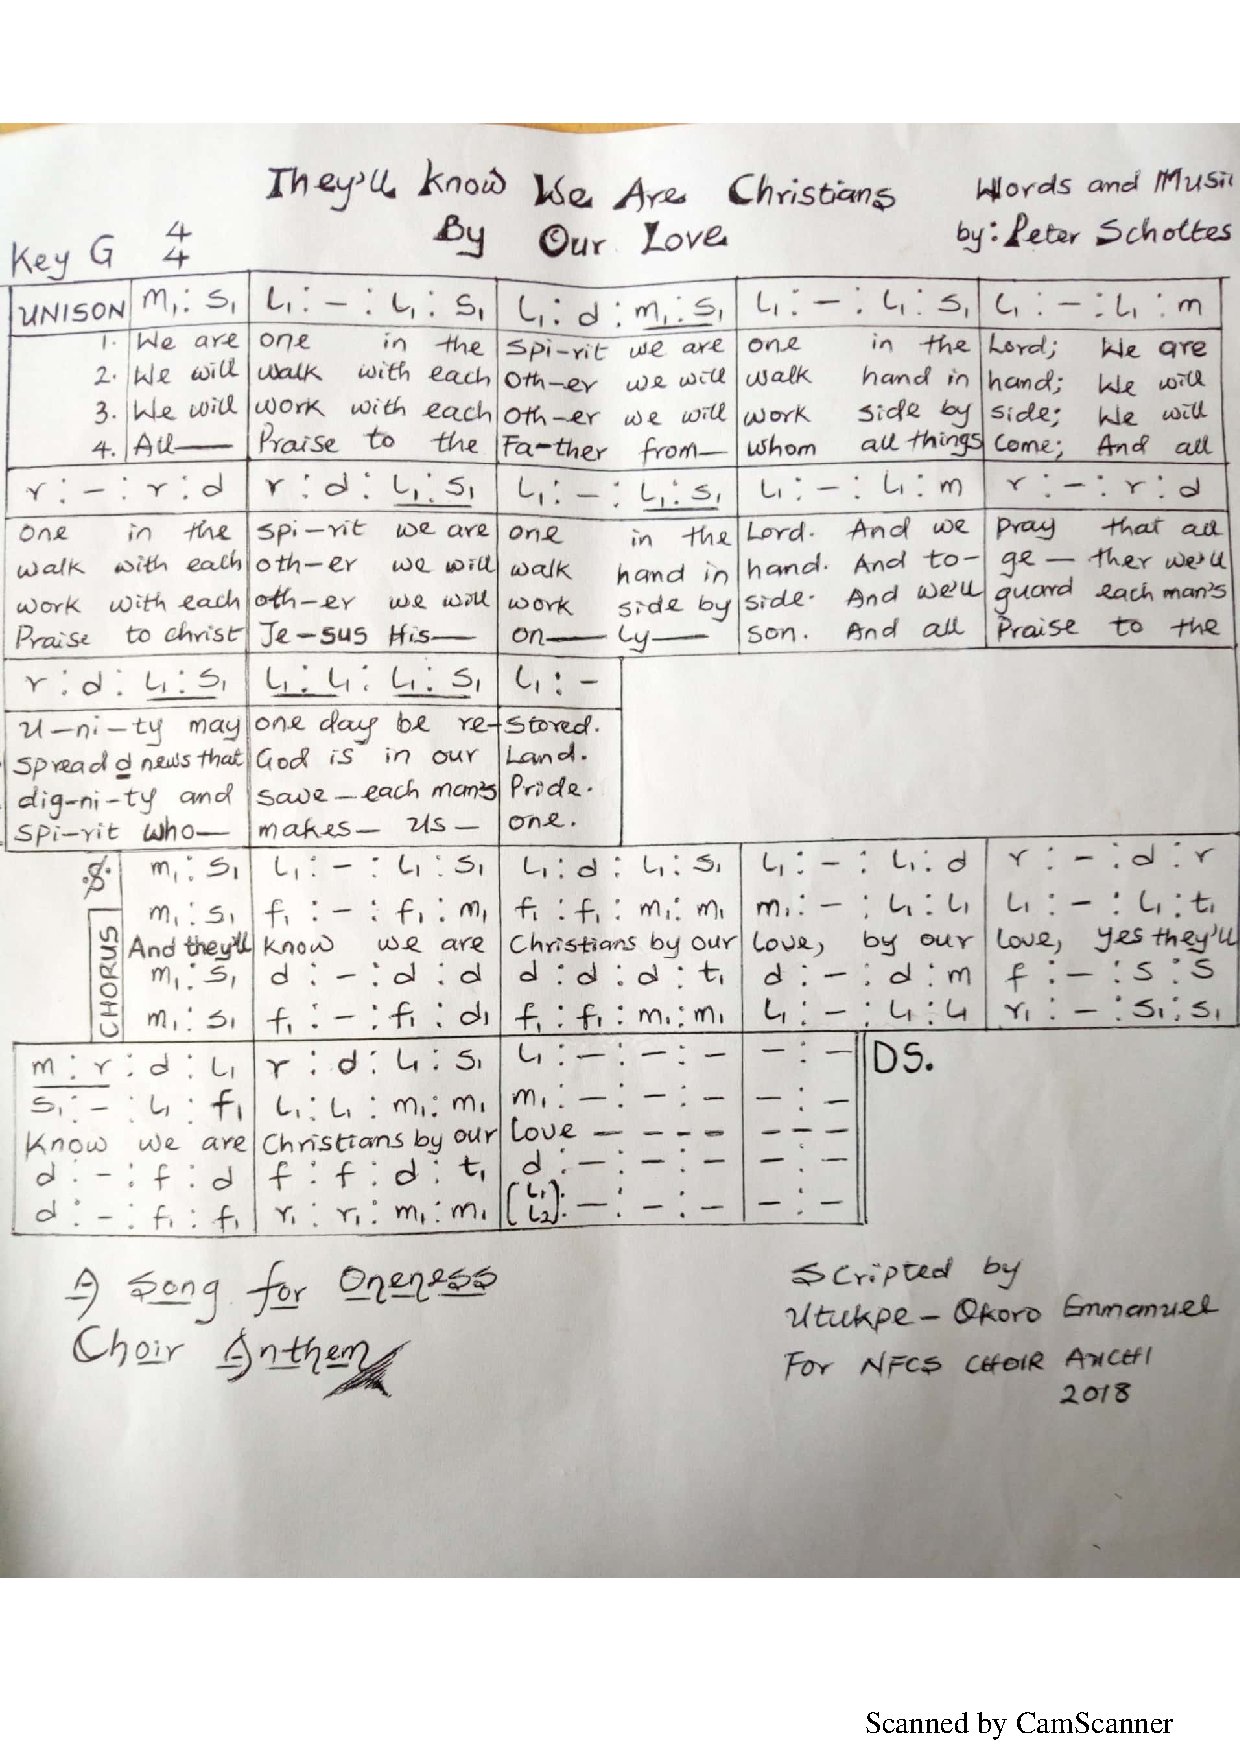 They'll Know We Are Christians
By Our Love
Words and Musi
by: Peter Scholtes
Key G 4/4
UNISON m₁ : s₁ | l₁ : - : l₁ : s₁ | l₁ : d : m₁ : s₁ | l₁ : - : l₁ : s₁ | l₁ : - : l₁ : m
1. We are one in the Spi-rit we are one in the Lord; We are
2. We will walk with each oth-er we will walk hand in hand; We will
3. We will work with each oth-er we will work side by side; We will
4. All— Praise to the Fa-ther from— whom all things come; And all
r : - : r : d | r : d : l₁ : s₁ | l₁ : - : l₁ : s₁ | l₁ : - : l₁ : m | r : - : r : d
one in the spi-rit we are one in the Lord. And we pray that all
walk with each oth-er we will walk hand in hand. And to- ge-ther we'll
work with each oth-er we will work side by side. And we'll guard each man's
Praise to christ Je-sus His— on— ly— son. And all Praise to the
r : d : l₁ : s₁ | l₁ : l₁ : l₁ : s₁ | l₁ : -
U-ni-ty may one day be re-stored.
spread d news that God is in our Land.
dig-ni-ty and save-each man's Pride.
spi-rit who— makes- us- one.
CHORUS
m₁ : s₁ | l₁ : - : l₁ : s₁ | l₁ : d : l₁ : s₁ | l₁ : - : l₁ : d | r : - : d : r
m₁ : s₁ | f₁ : - : f₁ : m₁ | f₁ : f₁ : m₁ : m₁ | m₁ : - : l₁ : l₁ | l₁ : - : l₁ : t₁
And they'll know we are Christians by our love, by our love, yes they'll
m₁ : s₁ | d : - : d : d | d : d : d : t₁ | d : - : d : m | f : - : s : s
m₁ : s₁ | f₁ : - : f₁ : d₁ | f₁ : f₁ : m₁ : m₁ | l₁ : - : l₁ : l₁ | r₁ : - : s₁ : s₁
m : r : d : l₁ | r : d : l₁ : s₁ | l₁ : - : - : - | - : - DS.
s₁ : - : l₁ : f₁ | l₁ : l₁ : m₁ : m₁ | m₁ : - : - : - | - : -
know we are Christians by our love - - - - - - -
d : - : f : d | f : f : d : t₁ | d : - : - : - | - : -
d : - : f₁ : f₁ | r₁ : r₁ : m₁ : m₁ | (l₁ l₂) : - : - : - | - : -
A Song for Oneness
Choir Anthem
Scripted by
Utukpe-Okoro Emmanuel
For NFCS CHOIR AKCHI
2018
Scanned by CamScanner